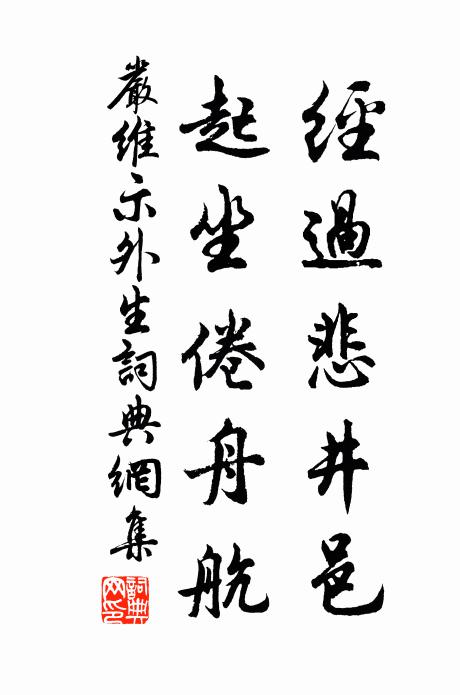 經過悲井邑
起坐倦舟航
嚴維示外生詞典網集
詞典網印